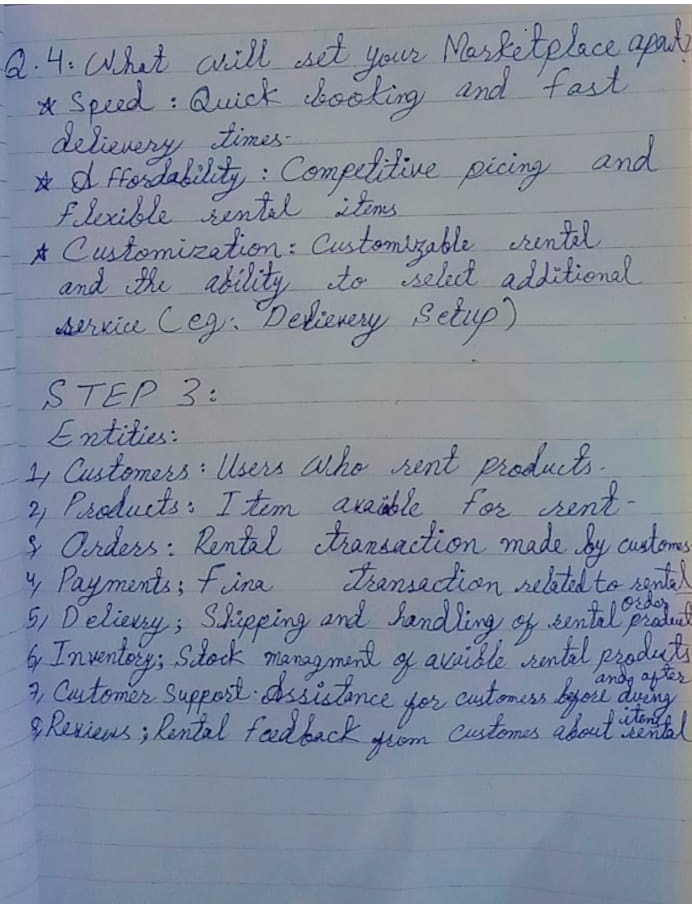 Q.4: What will set your Marketplace apart?
* Speed : Quick booking and fast
delievery times.
* Affordability : Competitive picing and
flexible rental items
* Customization : Customizable rental
and the ability to select additional
service (eg: Delievery Setup)
STEP 3:
Entities:
1, Customers : Users who rent products.
2, Products : Item avaible for rent -
3, Orders : Rental transaction made by customes
4, Payments ; Fina transaction related to rental
order
5, Delievry ; Shipping and handling of rental product
6, Inventory ; Stock managment of avaible rental products
and after
7, Customer Support . Assistance for customess before duing
items
8, Reviews ; Rental Feedback from customes about rental